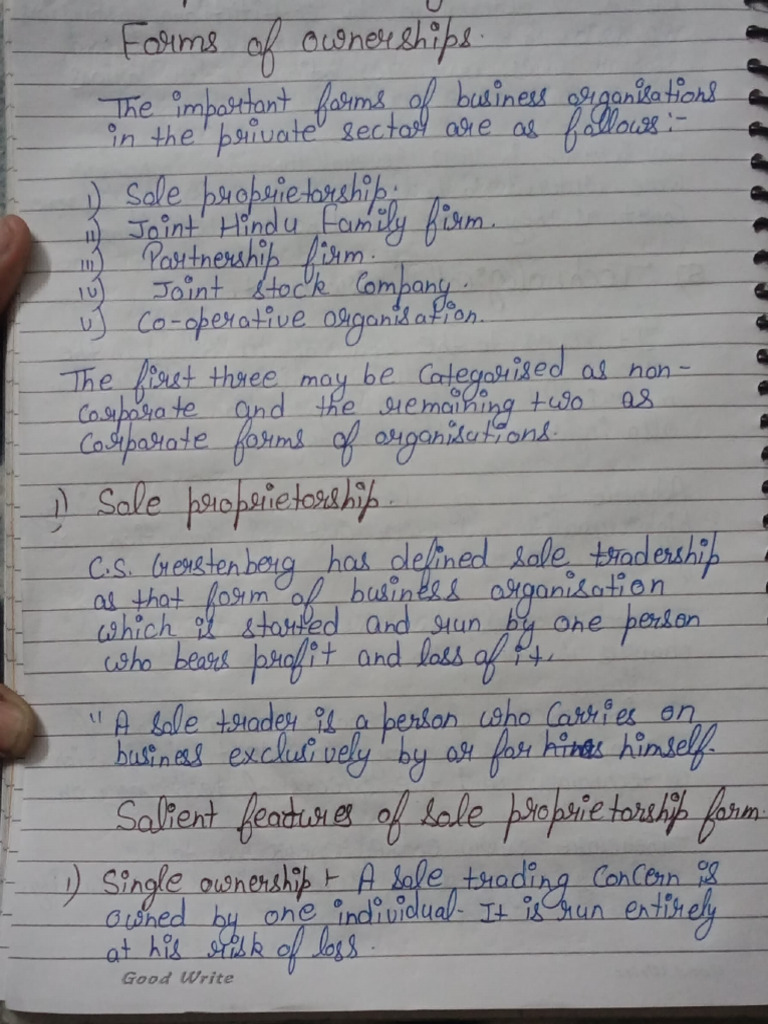 Forms of ownerships.
The important forms of business organisations
in the private sector are as follows:-
i) Sole proprietorship.
ii) Joint Hindu Family firm.
iii) Partnership firm.
iv) Joint stock Company.
v) Co-operative organisation.
The first three may be Categorised as non-
corporate and the remaining two as
corporate forms of organisations.
i) Sole proprietorship.
C.S. Gerstenberg has defined sole tradership
as that form of business organisation
which is started and run by one person
who bears profit and loss of it.
" A sole trader is a person who Carries on
business exclusively by or for himself.
Salient features of sole proprietorship form.
i) Single ownership :- A sole trading Concern is
owned by one individual. It is run entirely
at his risk of loss.
Good Write